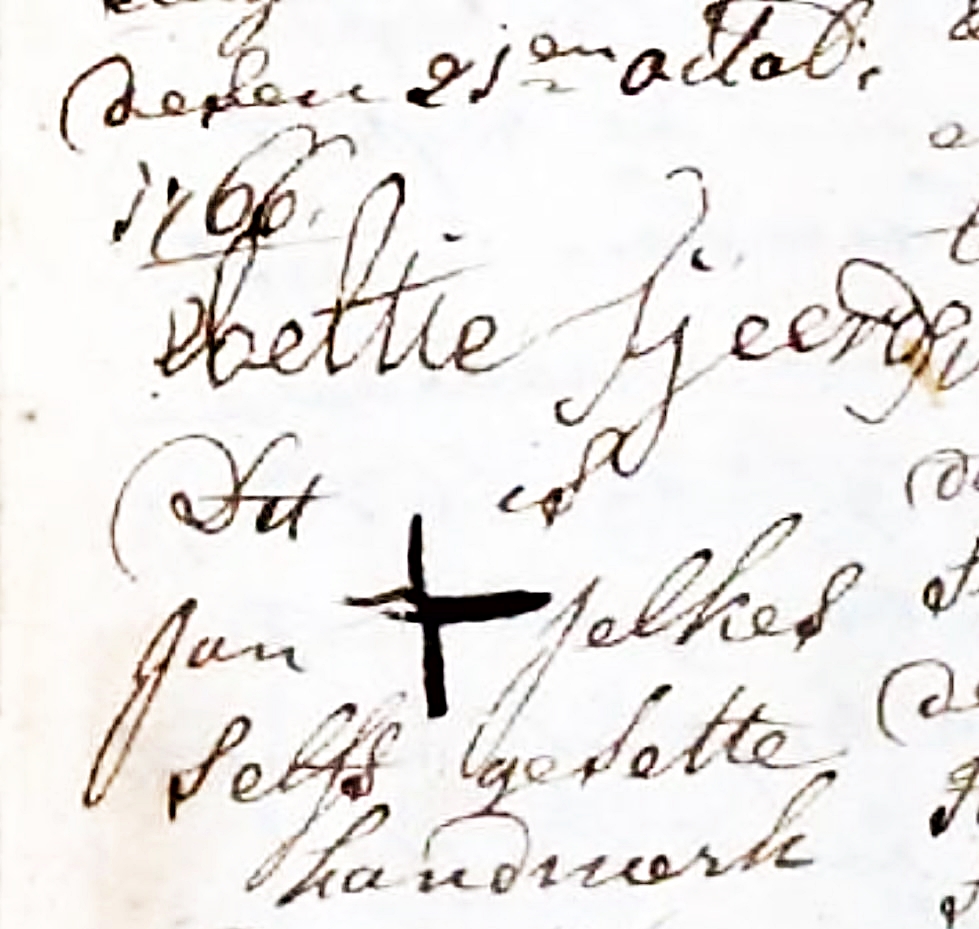 desen 21en octob:
1766.
baettie Sjeerds
Dit is
Jan Jelkes
selfs gesette
handmerk